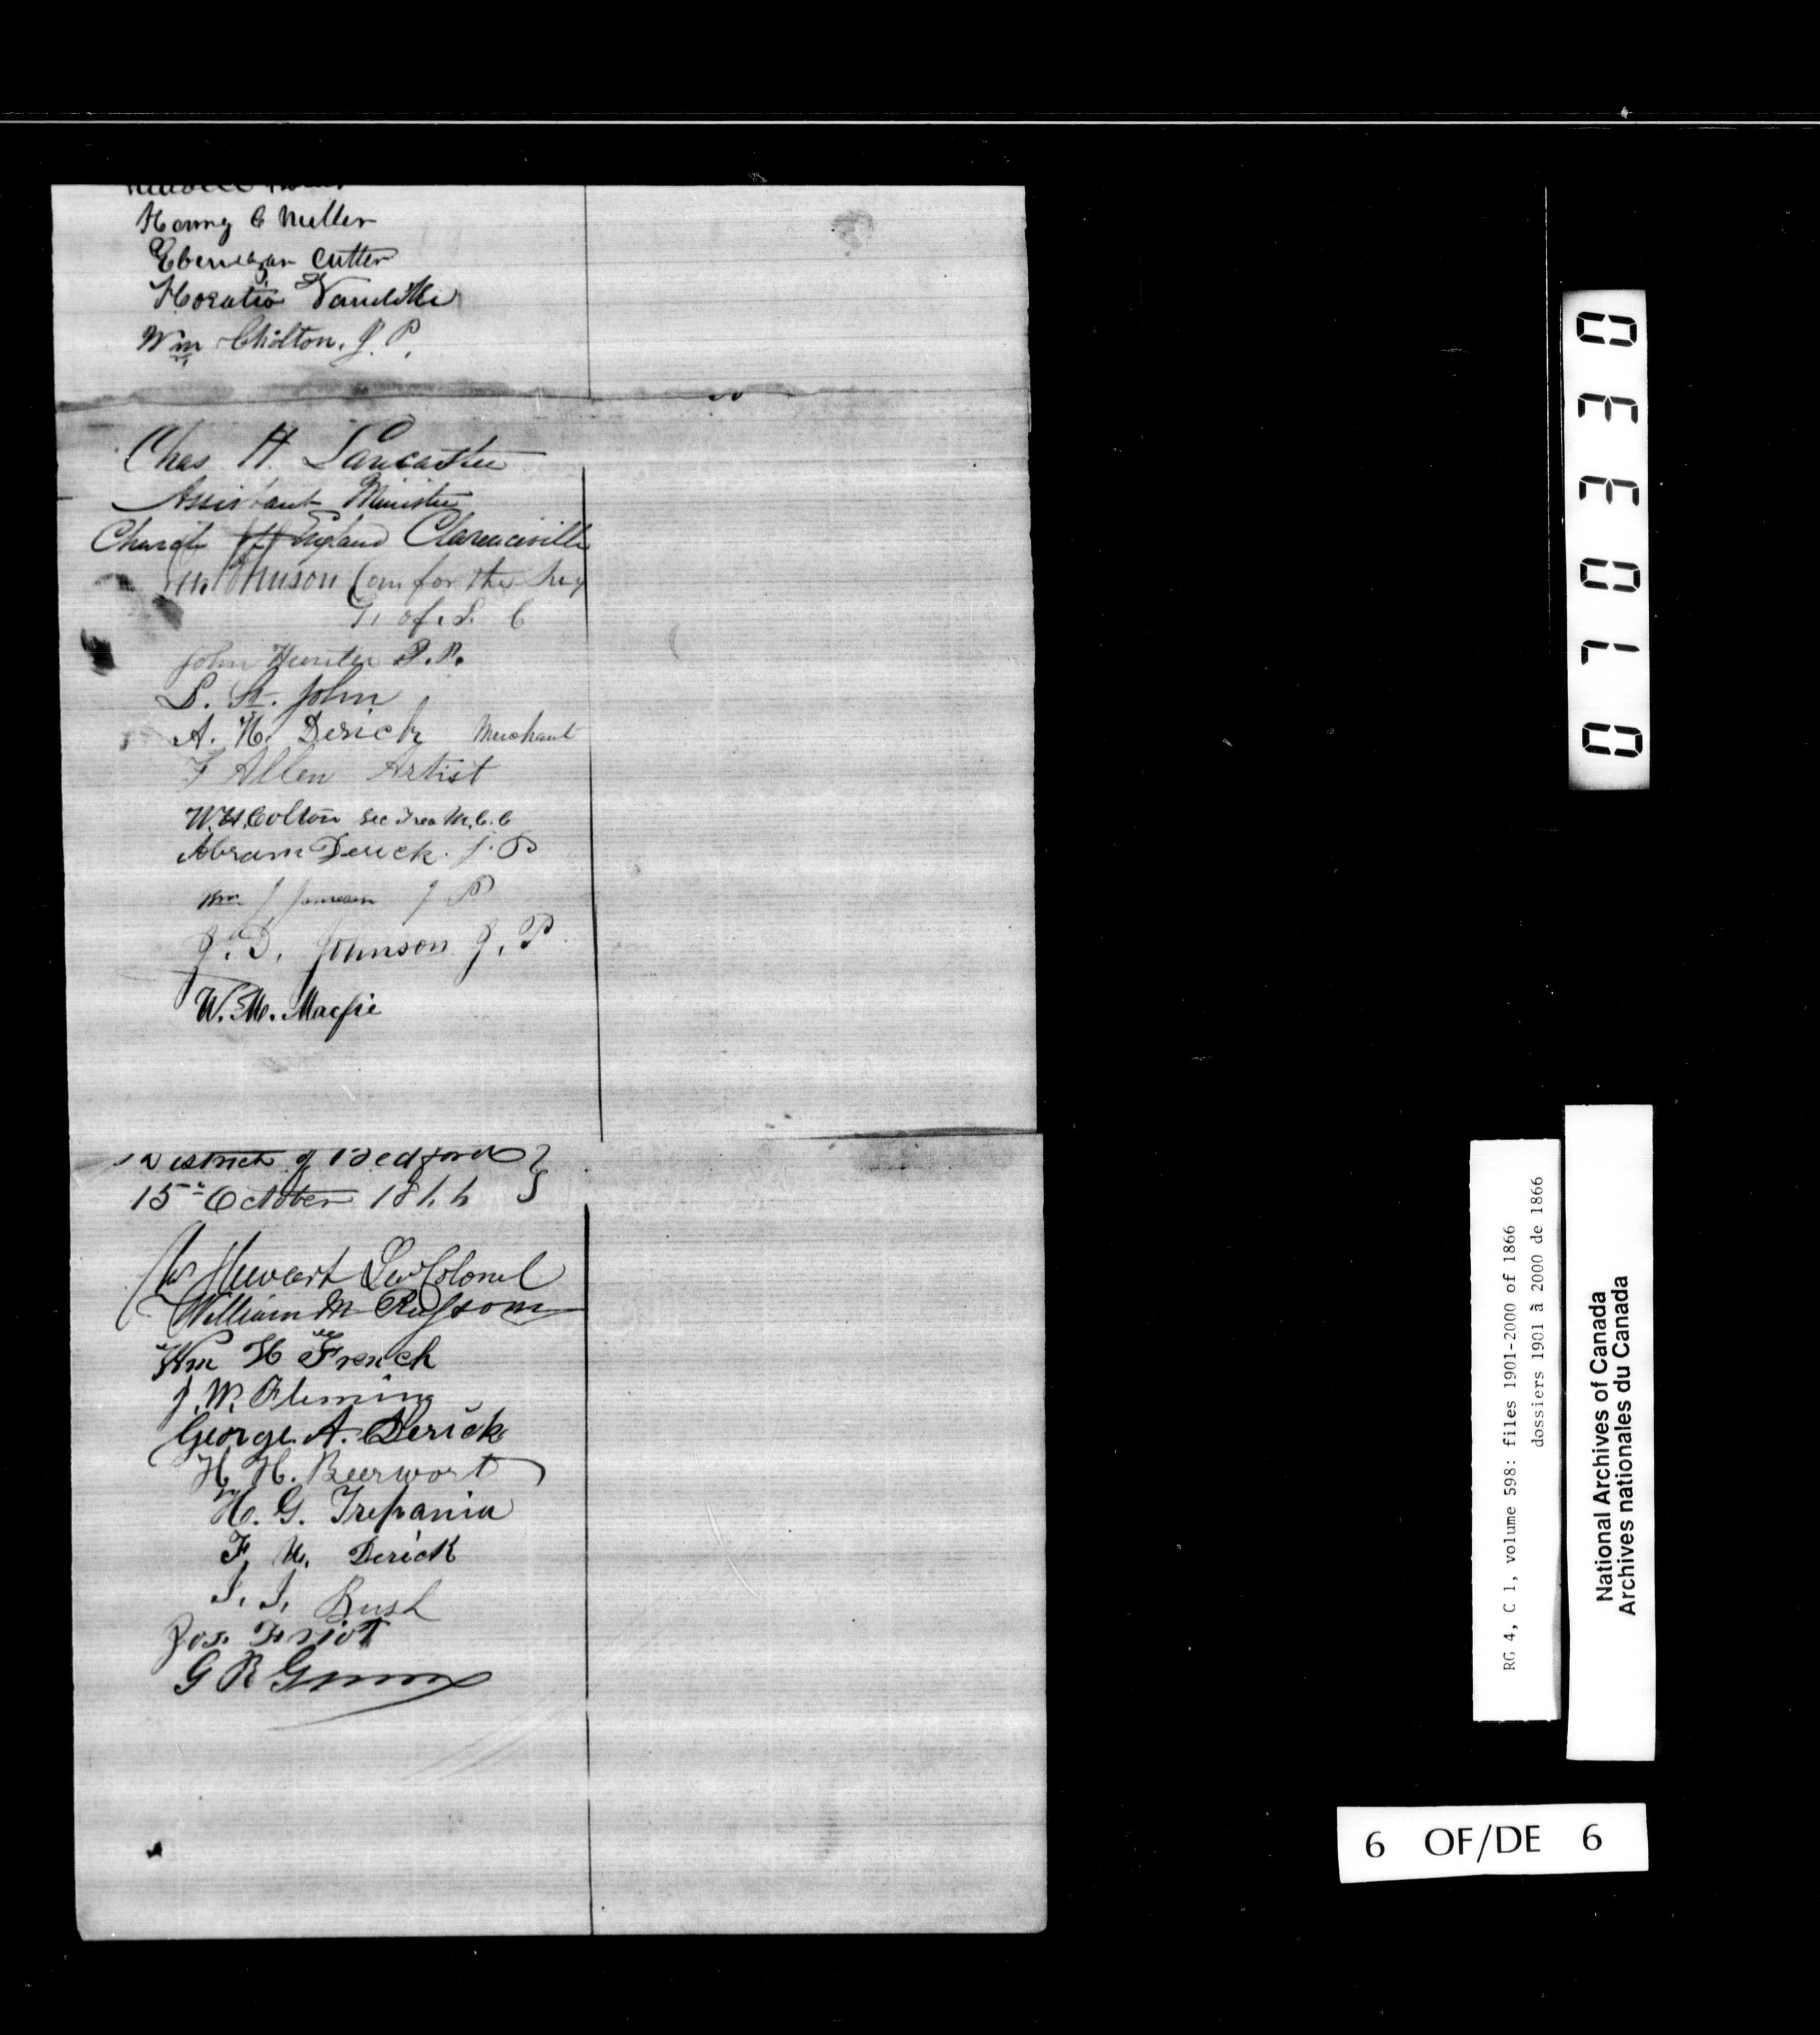 Henry C Miller
Ebenezer Cutter
Horatio Vanditte
Wm Chilton, J. P.
Chas H. Lancaster
Assistant Minister
Church of England Clarenceville
Johnson Com for the
of L. C
John Hunter J.P.
L. St. John
A. H. Derick Merchant
F Allen Artist
W.H. Colton Sec Trea M.C.C
Abram Derick. J. P
Wm J Jameson J P
J. D. Johnson J. P
W. M. Macfie
District of Bedford }
15th October 1866
Stewart Lt Colonel
William M
Wm H French
J. W. Fleming
George A. Derick
H. H. Beerwort
H. G. Trepania
F. U. Derick
I. I. Bush
Jos. Friot
G R
070330
RG 4, C 1, volume 598: files 1901-2000 of 1866
dossiers 1901 à 2000 de 1866
National Archives of Canada
Archives nationales du Canada
6 OF/DE 6